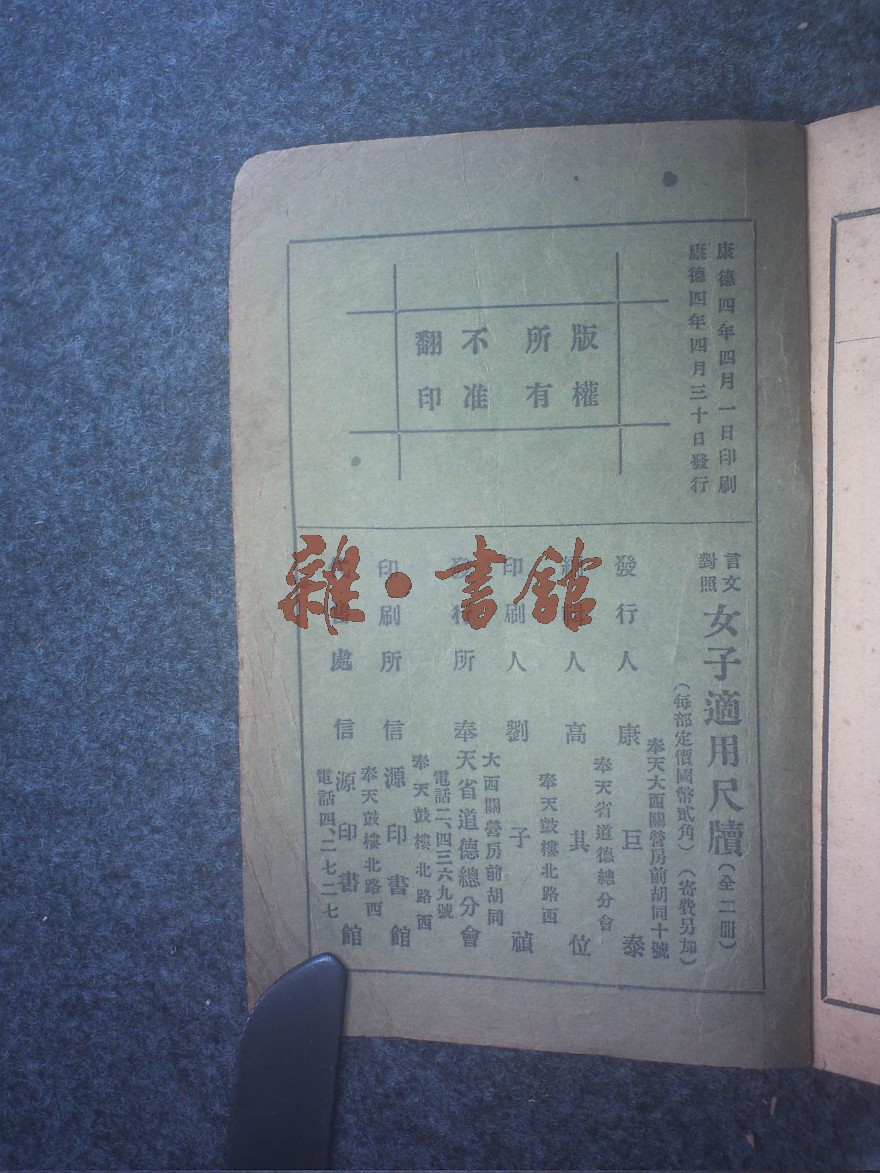 康德四年四月一日印刷
康德四年四月三十日發行
版權
所有
不准
翻印
言文
對照
女子適用尺牘(全二冊)
(每部定價國幣貳角)(寄費另加)
奉天大西關營房前胡同十號
發行人 康巨泰
奉天省道德總分會
人 高其位
奉天鼓樓北路西
印刷人 劉子禎
大西關營房前胡同
發行所 奉天省道德總分會
電話二、四三六九號
奉天鼓樓北路西
印刷所 信源印書館
奉天鼓樓北路西
處 信源印書館
電話四、二七二七
雜·書館